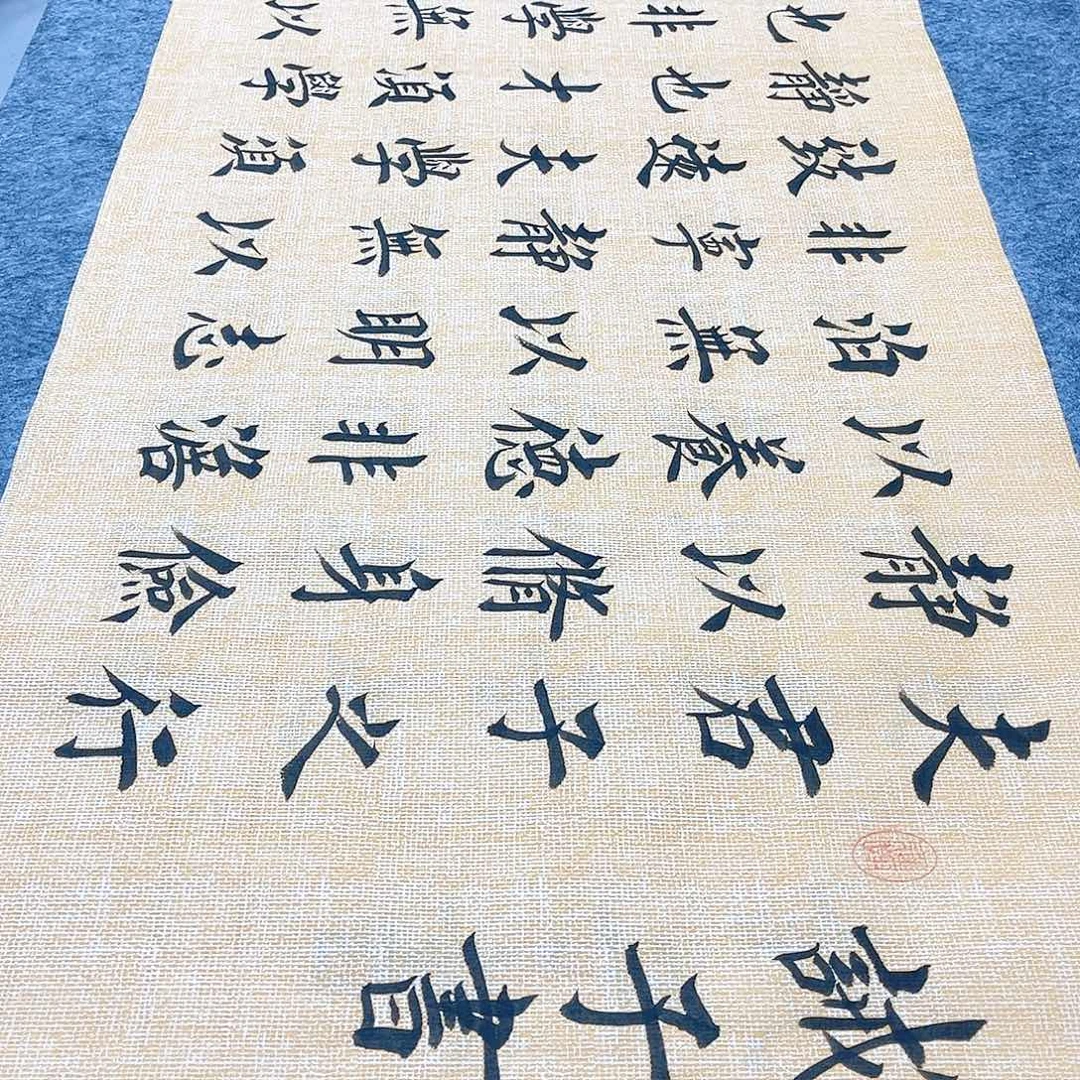 誡子書
夫君子之行
靜以脩身儉
以養德非澹
泊無以明志
非寧靜無以
致遠夫學須
靜也才須學
也非學無以